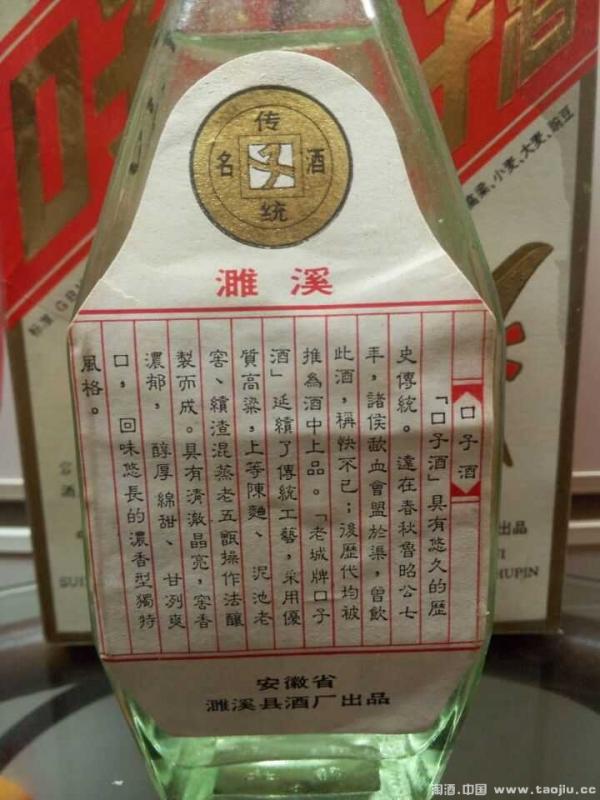 传
名 酒
统
濉溪
口子酒
「口子酒」具有悠久的歷
史傳統。遠在春秋魯昭公七
年，諸侯歃血會盟於渠，曾飲
此酒，稱快不已；後歷代均被
推為酒中上品。「老城牌口子
酒」延續了傳統工藝，采用優
質高粱，上等陳麯、泥池老
窖、續渣混蒸老五甑操作法釀
製而成。具有清澈晶亮，窖香
濃郁，醇厚綿甜、甘冽爽
口，回味悠長的濃香型獨特
風格。
安徽省
濉溪县酒厂出品
酒
小麦、大麦、豌豆
出品
HUPIN
淘酒.中国 www.taojiu.cc